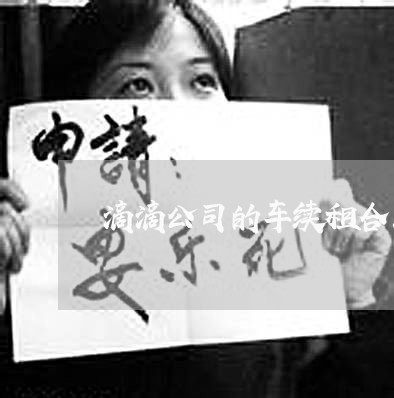 申請：
滴滴公司的车续租合
安乐死